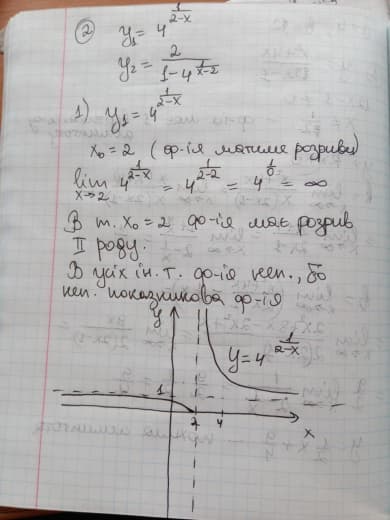 ② y₁ = 4^(1/(2-x))
y₂ = 2/(1-4^(1/(x-2)))
1) y₁ = 4^(1/(2-x))
x₀ = 2 (ф-ія матиме розриви)
lim x→2 4^(1/(2-x)) = 4^(1/(2-2)) = 4^(1/0) = ∞
В т. x₀ = 2 ф-ія має розрив
II роду.
В усіх ін. т. ф-ія неп., бо
неп. показникова ф-ія
y
y = 4^(1/(2-x))
1
2 4
x